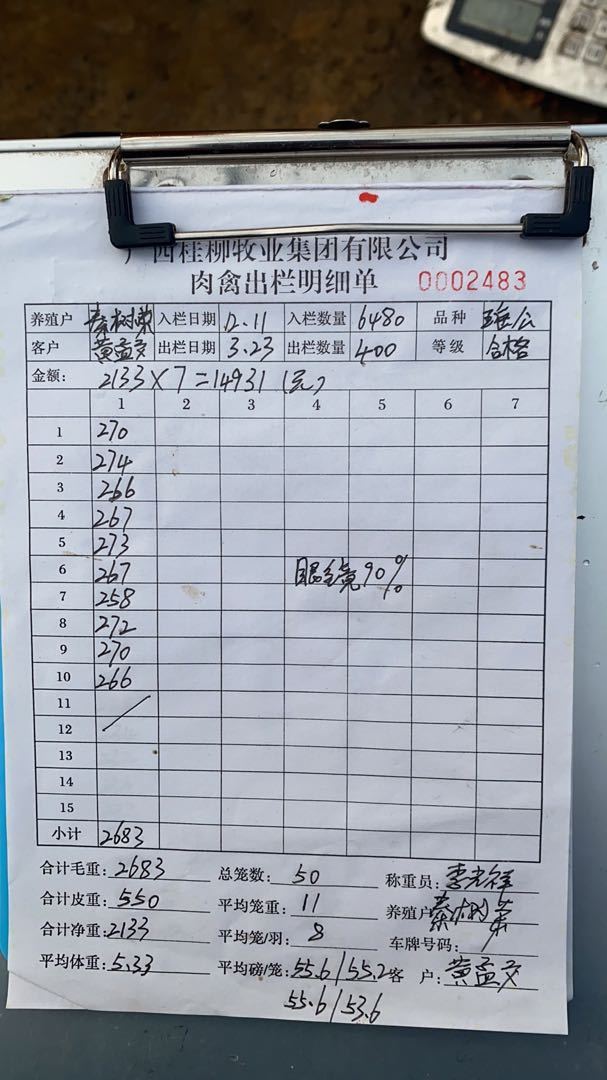 广西桂柳牧业集团有限公司
肉禽出栏明细单 0002483
养殖户 秦树荣 入栏日期 12.11 入栏数量 6480 品种
客户 黄孟交 出栏日期 3.23 出栏数量 400 等级 合格
金额: 2133×7=14931(元)
1 2 3 4 5 6 7
1 270
2 274
3 266
4 267
5 273
6 267 眼镜90%
7 258
8 272
9 270
10 266
11
12
13
14
15
小计 2683
合计毛重: 2683 总笼数: 50 称重员: 李光祥
合计皮重: 550 平均笼重: 11 养殖户 秦树荣
合计净重: 2133 平均笼/羽: 8 车牌号码:
平均体重: 5.33 平均磅/笼: 55.6/55.2 客户: 黄孟交
55.6/53.6